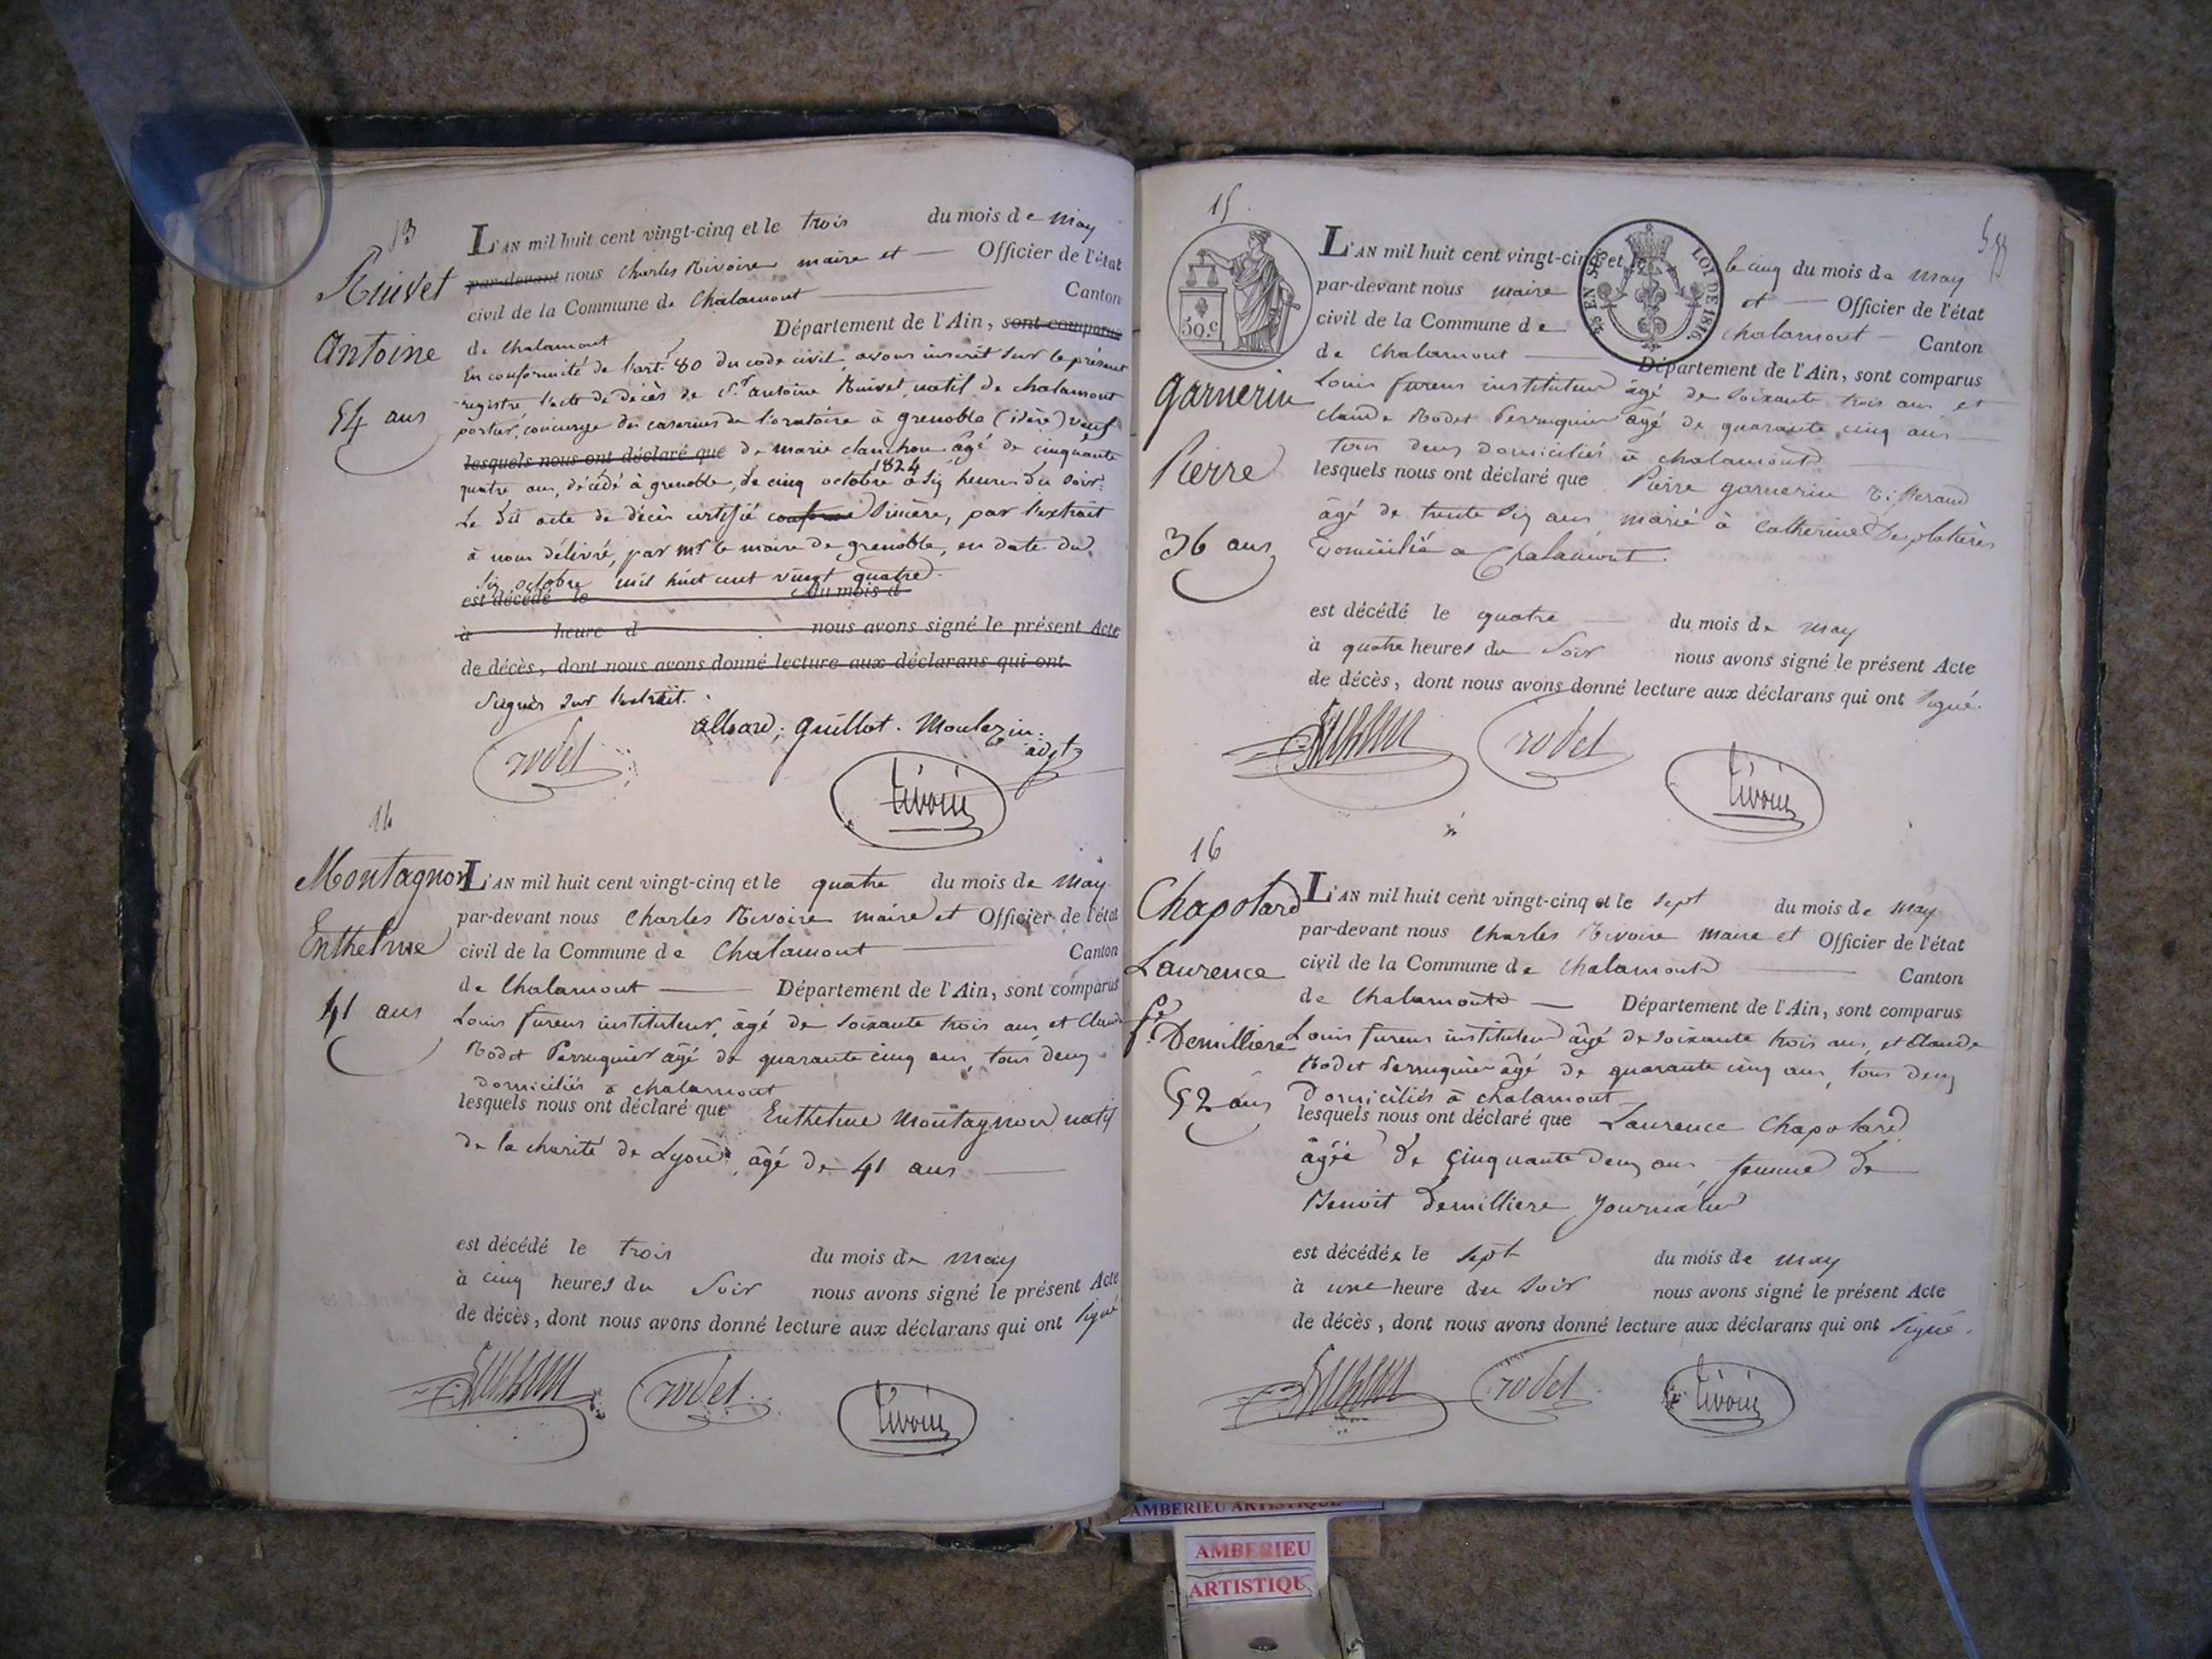 13
Ruivet
Antoine
54 ans
L'AN mil huit cent vingt-cinq et le trois du mois de may
par-devant nous Charles Rivoire maire et Officier de l'état
civil de la Commune de Chalamont Canton
de Chalamont Département de l'Ain, sont comparus
En conformité de l'art. 80 du code civil, avons inscrit sur le présent
registre l'acte de décès de Sr. antoine Ruivet, natif de chalamont
portier, concierge des casernes de l'oratoire à grenoble (isère) veuf
lesquels nous ont déclaré que de marie clanchon âgé de cinquante
quatre ans, décédé à grenoble, le cinq octobre 1824 à six heures du soir.
Le dit acte de décès certifié conforme sincère, par l'extrait
à nous délivré, par mr le maire de grenoble, en date du
six octobre mil huit cent vingt quatre.
est décédé le du mois d
à heure d nous avons signé le présent Acte
de décès, dont nous avons donné lecture aux déclarans qui ont
signés sur l'extrait.
allard, guillot. Moulezin.
adjt
rodet
Rivoire
14
Montagnon
Enthelme
41 ans
L'AN mil huit cent vingt-cinq et le quatre du mois de may
par-devant nous Charles Rivoire maire et Officier de l'état
civil de la Commune de Chalamont Canton
de Chalamont Département de l'Ain, sont comparus
Louis fureux instituteur, âgé de soixante trois ans, et Claude
Rodet Perruquier âgé de quarante cinq ans, tous deux
domiciliés à chalamont
lesquels nous ont déclaré que Enthelme Montagnon natif
de la charité de Lyon, âgé de 41 ans
est décédé le trois du mois de may
à cinq heures du soir nous avons signé le présent Acte
de décès, dont nous avons donné lecture aux déclarans qui ont signé
rodet
Rivoire
15.
599
50.c
LOI DE 1816.
garnerin
Pierre
36 ans
L'AN mil huit cent vingt-cinq et le le cinq du mois de may
par-devant nous maire et Officier de l'état
civil de la Commune de chalamont Canton
de Chalamont Département de l'Ain, sont comparus
Louis fureux instituteur âgé de soixante trois ans et
claude Rodet Perruquier âgé de quarante cinq ans
tous deux domiciliés à chalamont
lesquels nous ont déclaré que Pierre garnerin Tisserand
âgé de trente six ans, marié à Catherine Desplatières
Domicilié a Chalamont.
est décédé le quatre du mois de may
à quatre heures du soir nous avons signé le présent Acte
de décès, dont nous avons donné lecture aux déclarans qui ont signé.
rodet
Rivoire
16
Chapolard
Laurence
fe Demilliere
52 ans
L'AN mil huit cent vingt-cinq et le sept du mois de may
par-devant nous Charles Rivoire maire et Officier de l'état
civil de la Commune de Chalamont Canton
de Chalamont Département de l'Ain, sont comparus
Louis fureux instituteur âgé de soixante trois ans, et Claude
Rodet Perruquier âgé de quarante cinq ans, tous deux
Domiciliés à chalamont
lesquels nous ont déclaré que Laurence Chapolard
âgée de cinquante deux ans, femme de
Benoit Demilliere Journalier
est décédée le sept du mois de may
à une heure du soir nous avons signé le présent Acte
de décès, dont nous avons donné lecture aux déclarans qui ont signé.
rodet
Rivoire
AMBERIEU ARTISTIQUE
AMBERIEU
ARTISTIQU